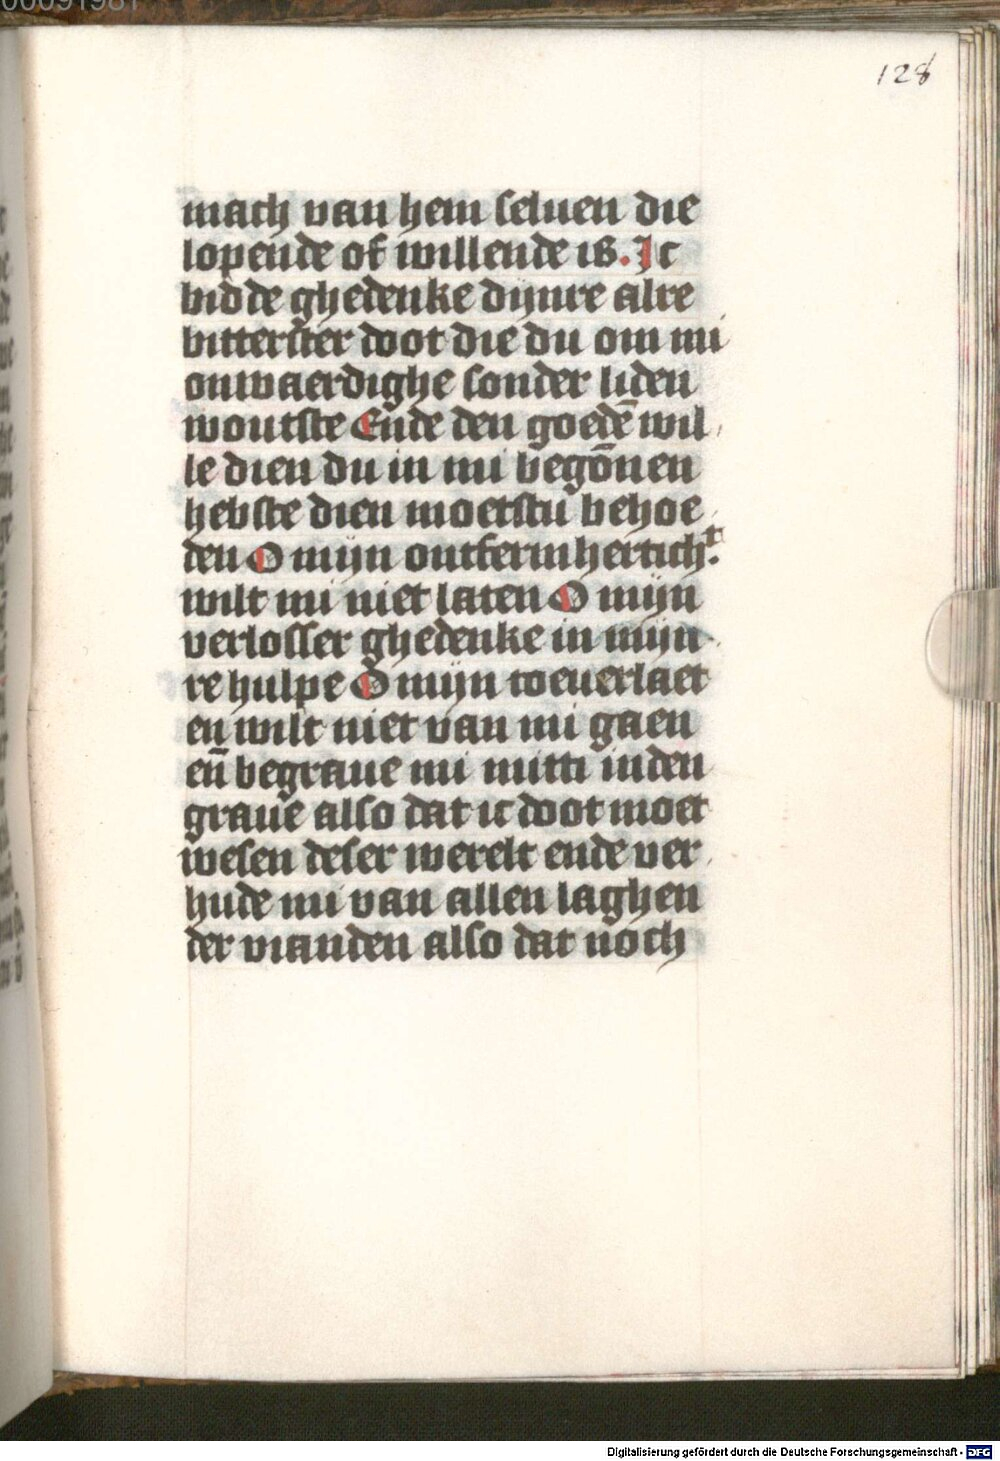 128
mach van hem seluen die
lopende of willende is. Ic
bidde ghedenke dijnre alre
bitterster doot die du om mi
onwaerdighe sonder liden
woutste Ende den goedē wil
le dien du in mi begōnen
hebste dien moetstu behoe
den O mijn ontfermherticht.
wilt mi niet laten O mijn
verlosser ghedenke in mijn
re hulpe O mijn toeuerlaet
en wilt niet van mi gaen
en̄ begraue mi mitti inden
graue also dat ic doot moet
wesen deser werelt ende ver
hude mi van allen laghen
der vianden also dat noch
Digitalisierung gefördert durch die Deutsche Forschungsgemeinschaft - DFG